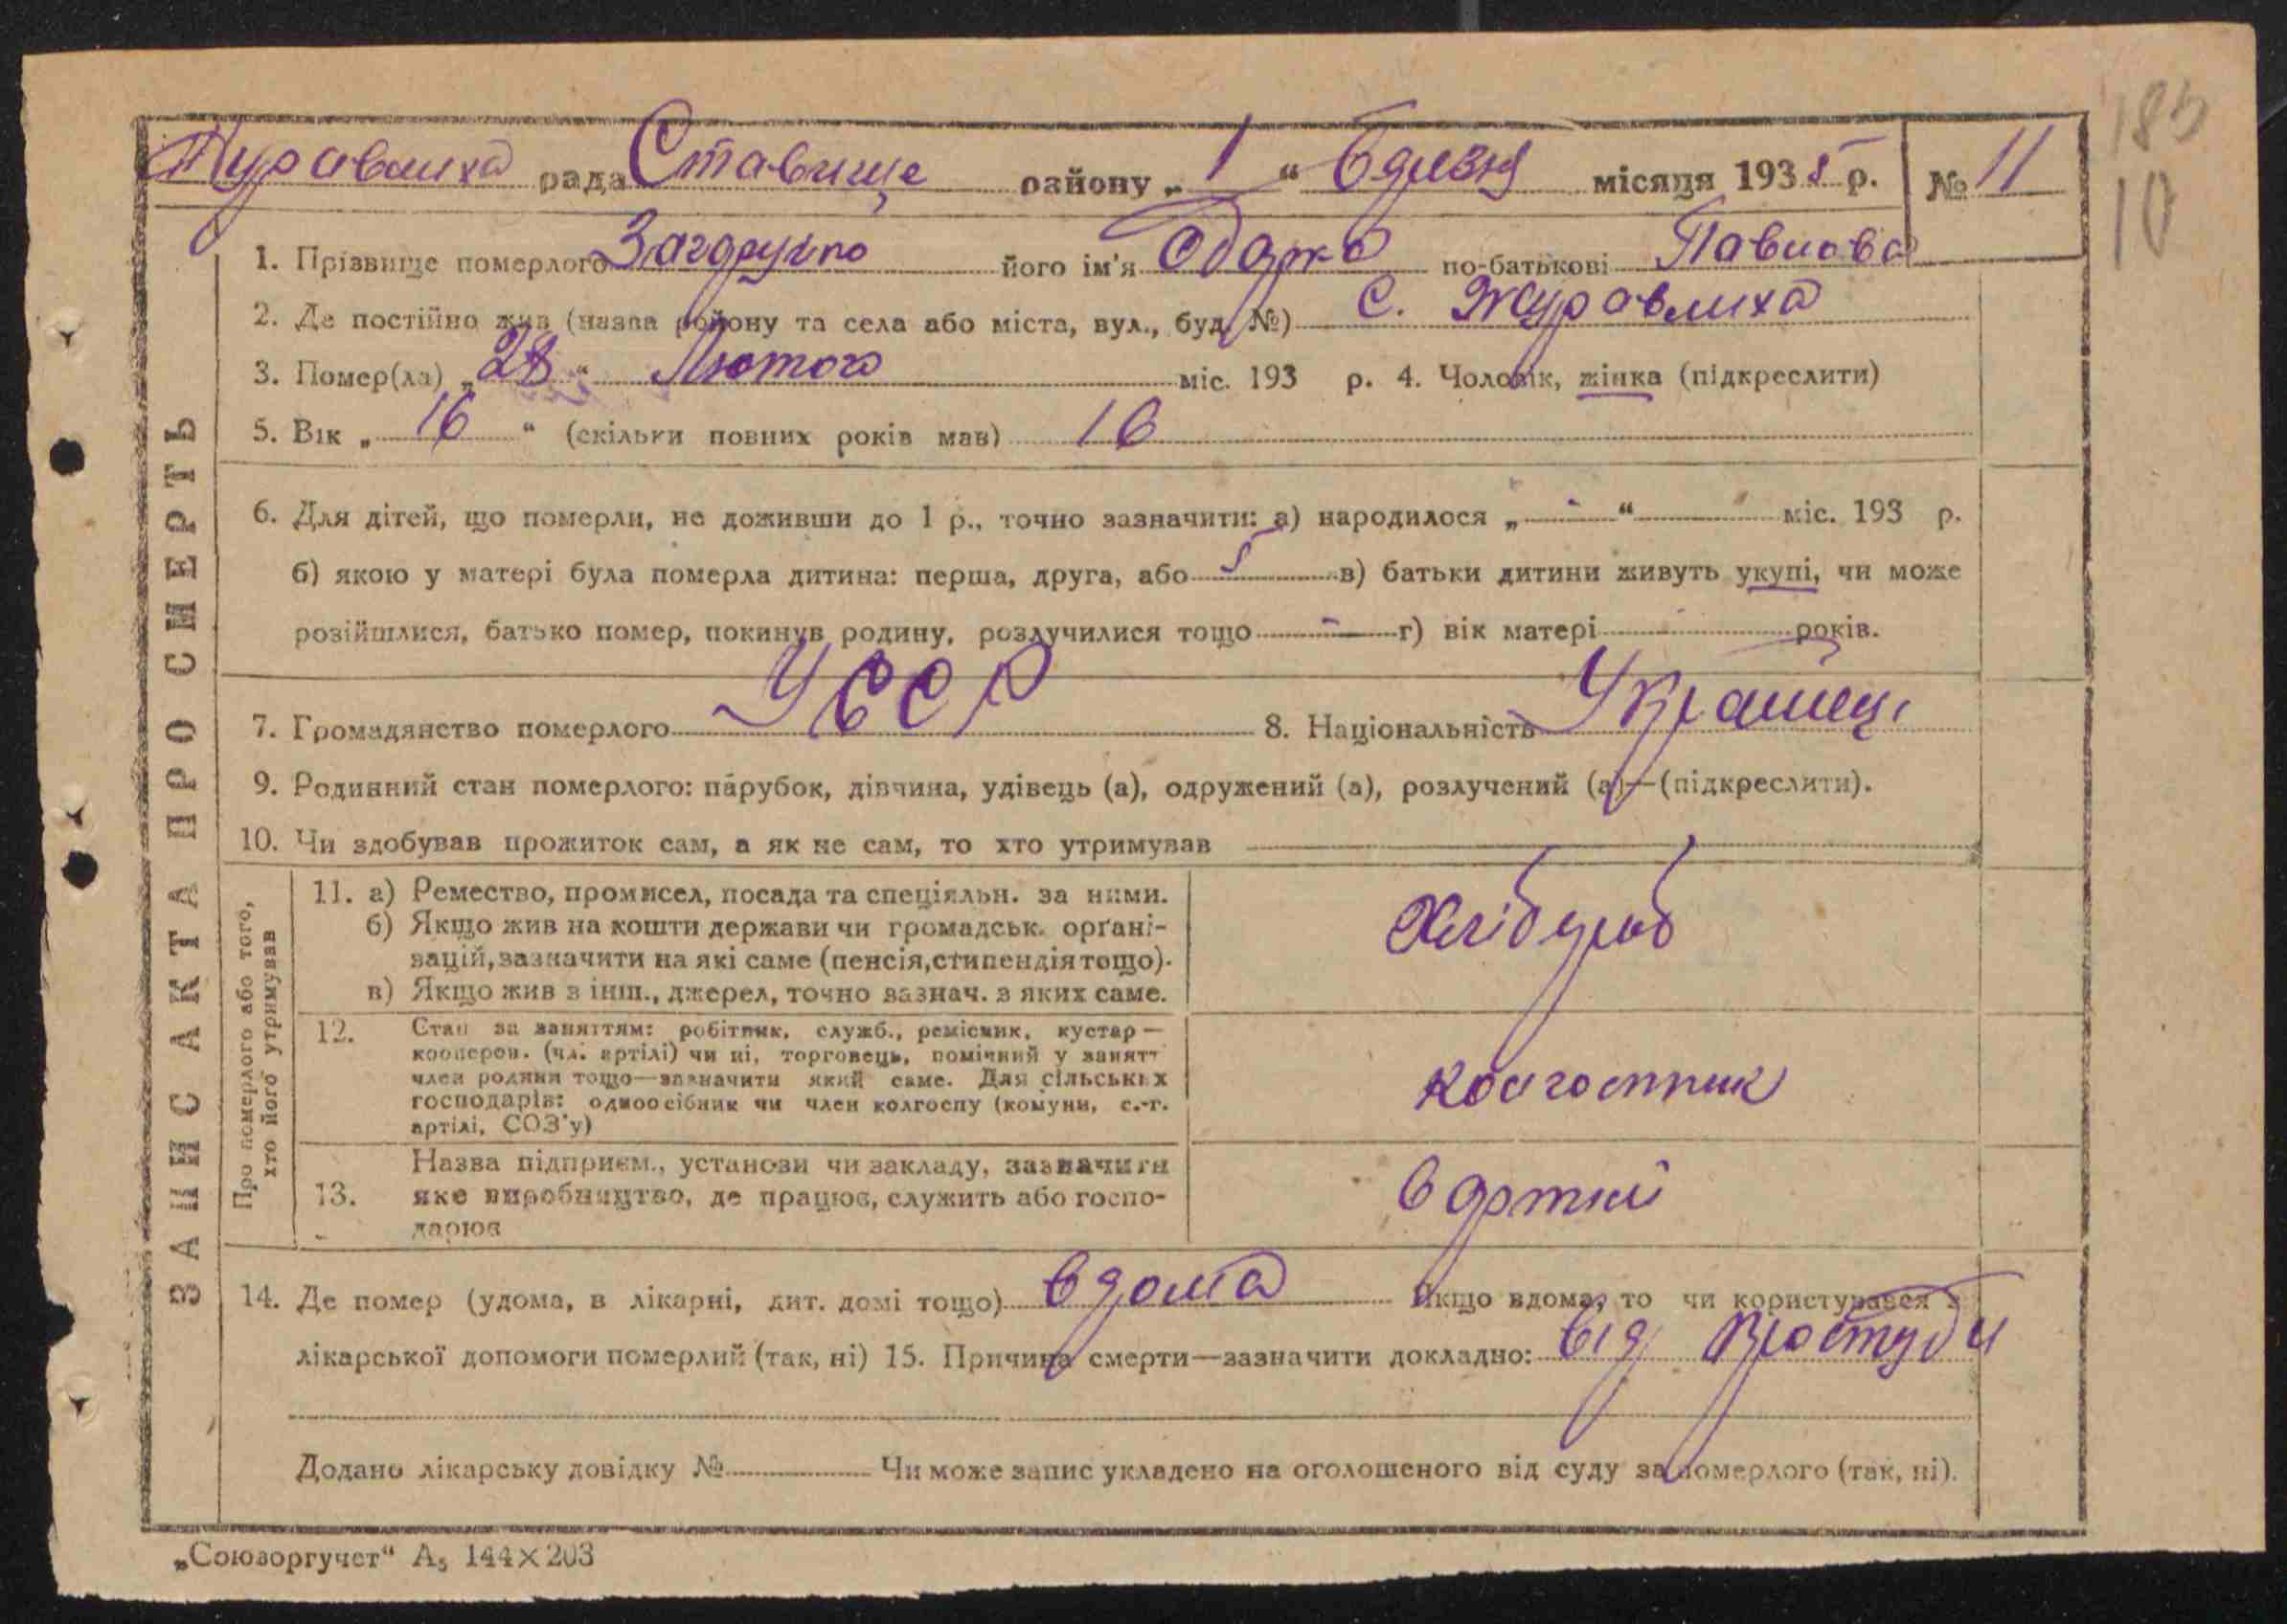 185
10
Журавлиха рада Ставище району „ 1 “ березня місяця 1935 р. № 11
1. Прізвище померлого його ім'я Одарка по-батькові Павлова
2. Де постійно жив (назва району та села або міста, вул., буд. №) С. Журавлиха
3. Помер(ла) „ 28 “ Лютого міс. 193 р. 4. Чоловік, жінка (підкреслити)
5. Вік „ 16 “ (скільки повних років мав) 16
6. Для дітей, що померли, не доживши до 1 р., точно зазначити: а) народилося „ - “ міс. 193 р.
б) якою у матері була померла дитина: перша, друга, або 5 в) батьки дитини живуть укупі, чи може
розійшлися, батько помер, покинув родину, розлучилися тощо - г) вік матері років.
7. Громадянство померлого УССР 8. Національність Українець
9. Родинний стан померлого: парубок, дівчина, удівець (а), одружений (а), розлучений (а)—(підкреслити).
10. Чи здобував прожиток сам, а як не сам, то хто утримував
ЗАПИС АКТА ПРО СМЕРТЬ
Про померлого або того,
хто його утримував
11. а) Ремество, промисел, посада та спеціяльн. за ними.
б) Якщо жив на кошти держави чи громадськ. орґані-
зацій, зазначити на які саме (пенсія, стипендія тощо).
в) Якщо жив з інш., джерел, точно зазнач. з яких саме.
Хлібороб
12. Стан за заняттям: робітник, служб., ремісник, кустар —
кооперов. (чл. артілі) чи ні, торговець, помічний у занятт
член родини тощо—зазначити який саме. Для сільських
господарів: одноосібник чи член колгоспу (комуни, с.-г.
артілі, СОЗ'у)
колгоспник
Назва підприєм., установи чи закладу, зазначити
13. яке виробництво, де працює, служить або госпо-
дарює
в артилі
14. Де помер (удома, в лікарні, дит. домі тощо) вдома Якщо вдома, то чи користувався з
лікарської допомоги померлий (так, ні) 15. Причина смерти—зазначити докладно: від простуди
Додано лікарську довідку № Чи може запис укладено на оголошеного від суду за померлого (так, ні).
„Союзоргучет“ А₅ 144×203